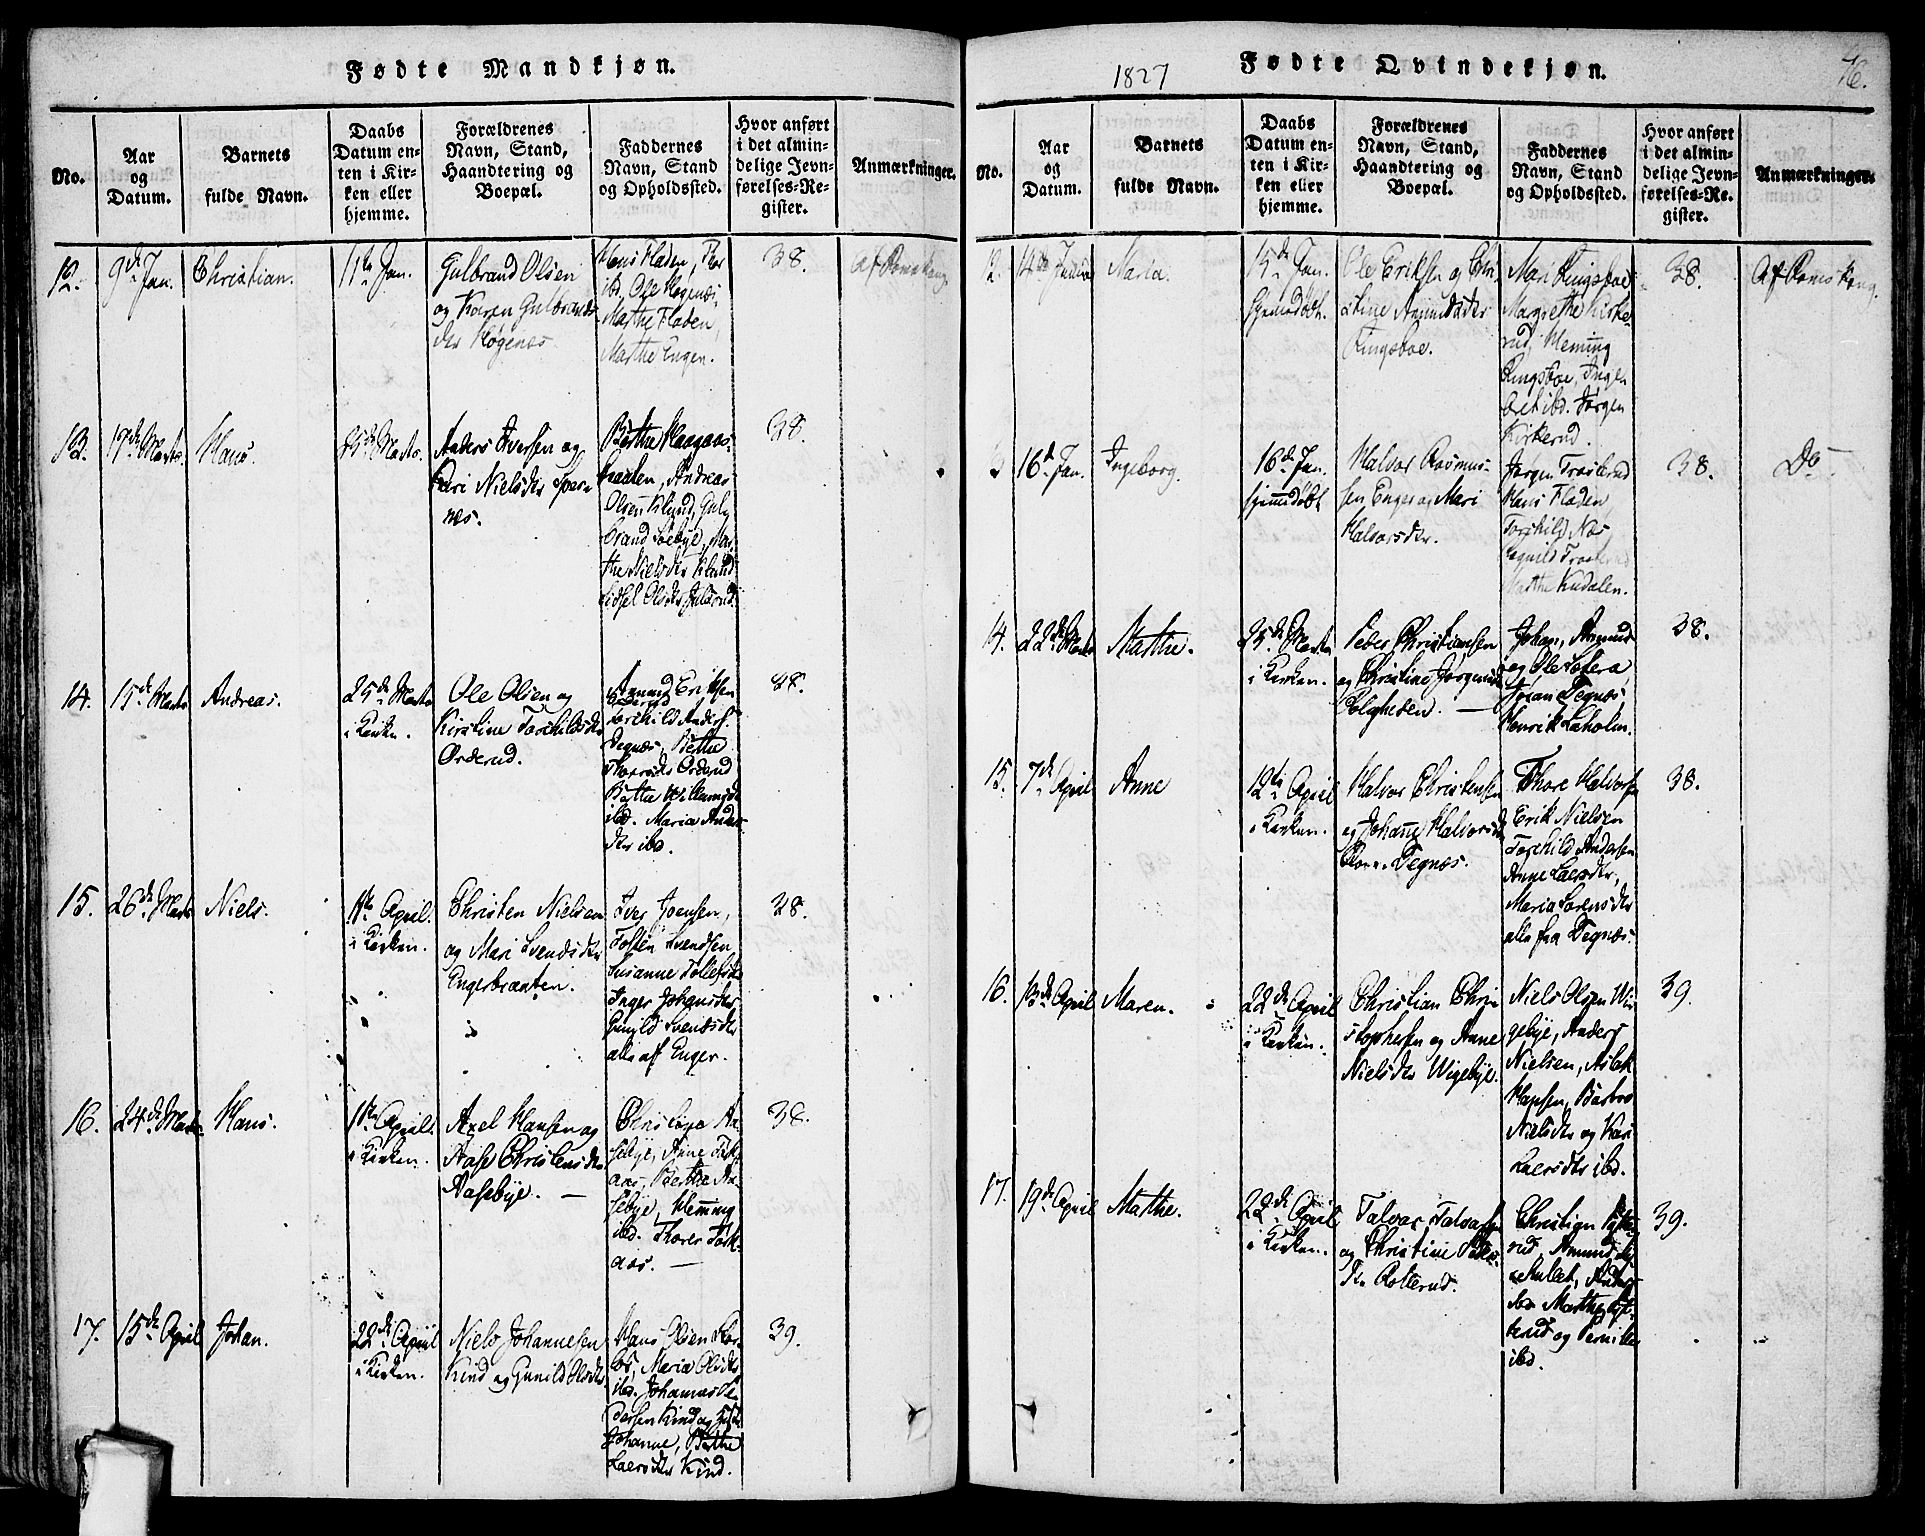 Fødte Mandkjøn.
No.
Aar
og
Datum.
Barnets
fulde Navn.
Daabs
Datum en-
ten i Kir-
ken eller
hjemme.
Forældrenes
Navn, Stand,
Haandtering og
Boepæl.
Faddernes
Navn, Stand
og Opholdssted.
Hvor anført
i det almin-
delige Jevn-
førelses-Re-
gister.
Anmærkninger.
12.
9de Jan.
Christian.
11te Jan.
Gulbrand Olsen
og Karen Gulbrands-
dtr Høgenæs
Hans Fladen, Per
ibd. Ole Høgenæs,
Marthe Fladen,
Marthe Engen.
38.
Af Romskoug
13.
17de Marts.
Hans.
25de Marts.
Anders Iversen og
Kari Nielsdtr
næs.
Berthe Haagaas-
braaten, Andreas
Olsen Klund, Gul-
brand Soebye, Mar-
the Nielsdtr Klund
Sidsel Olsdtr
38.
14.
15de Marts
Andreas.
25de Marts
i Kirken.
Ole Olsen og
Kirstine Torchildsdtr
Orderud.
Amund Eriksen
Orderud
Torchild Anders
Degnæs, Berthe
Orderud
Berthe Willumsd
ibd. Maria Anders
dtr ibd.
38.
15.
26de Marts
Niels.
1ste April.
i Kirken.
Christen Nielsen
og Mari Svendsdtr
Engerbraaten.
Iver Joensen,
Tosten Svendsen
Susanne Tollefsdtr
Inger Johansdtr
Gunild Svendsdtr
alle af Enger.
38.
16.
24de Marts
Hans.
1ste April.
i Kirken.
Axel Hansen og
Aase Christensdtr
Aasebye. —
Aa-
sebye, Anne Tosk-
aas, Berthe Aa-
sebye, Hemming
ibd. Thorer Tosk-
aas. —
38.
17.
15de April
Johan.
22de April
i Kirken.
Niels Johannesen
Kind og Gunild Olsdtr
Hans Olsen
Maria Olsdtr
ibd. Johannes
dersen Kind og
Johanne, Berthe
Laersdtr Kind.
39.
1827
Fødte Qvindekjøn.
76.
No.
Aar
og
Datum.
Barnets
fulde Navn.
Daabs
Datum en-
ten i Kir-
ken eller
hjemme.
Forældrenes
Navn, Stand,
Haandtering og
Boepæl.
Faddernes
Navn, Stand
og Opholdssted.
Hvor anført
i det almin-
delige Jevn-
førelses-Re-
gister.
Anmærkninger.
12.
14de Januar
Maria.
15de Jan.
hjemmedøbt.
Ole Eriksen og Chri-
stine Amundsdtr
Ringsboe.
Mari Ringsboe
Margrethe Kirke-
rud, Heming
Ringsboe, Inge-
bret ibd. Jørgen
Kirkerud.
38.
Af Romskoug.
16de Jan.
Ingeborg.
16de Jan.
hjemmedøbt
Halvor Rasmus-
sen Enger og Mari
Halvorsdtr.
Jørgen Trosterud
Hans Fladen,
Torchild Næs
Ragnild Trosterud
Marthe Kudalen.
38.
Do
14.
22de Marts
Marthe.
25de Marts
i Kirken.
Peder Christiansen
og Christine Jørgensd
Bølgheden. —
Johan, Amund
og Ole
Degnæs
Henrik Laholm.
38.
15.
7de April
Anne
12te April
i Kirken.
Halvor Christensen
og Johanne Halvorsd
Degnæs.
Thore Halvorsen
Erik Nielsen
Torchild Andersen
Anne Laersdtr,
Maria Sorensdtr
alle fra Degnæs.
38.
16.
13de April
Maren.
22de April
i Kirken.
Christian Chri-
stophersen og Anne
Nielsdtr Wigebye.
Niels Olsen Wi-
gebye, Anders
Nielsen, Aslak
Hansen, Barbro
Nielsdtr og Kari
Laersdtr ibd.
39.
17.
19de April
Marthe.
22de April
i Kirken.
Talvor Talvorsen
og Christine Peders-
Rotterud.
Christian
rud, Amund
Anders
ibd. Marthe
terud og Pernille
ibd.
39.